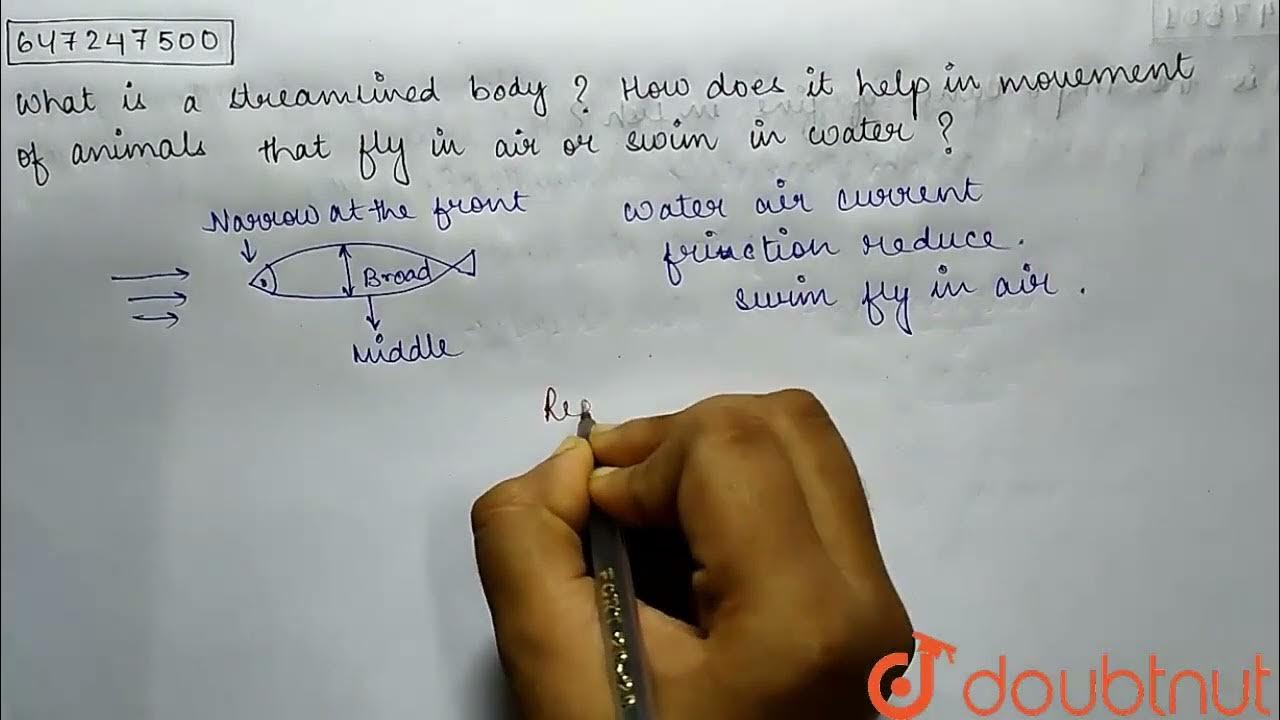 647247500
What is a streamlined body ? How does it help in movement
of animals that fly in air or swim in water ?
Narrow at the front
Broad
Middle
water air current
friuction reduce.
swim fly in air .
Rep
doubtnut